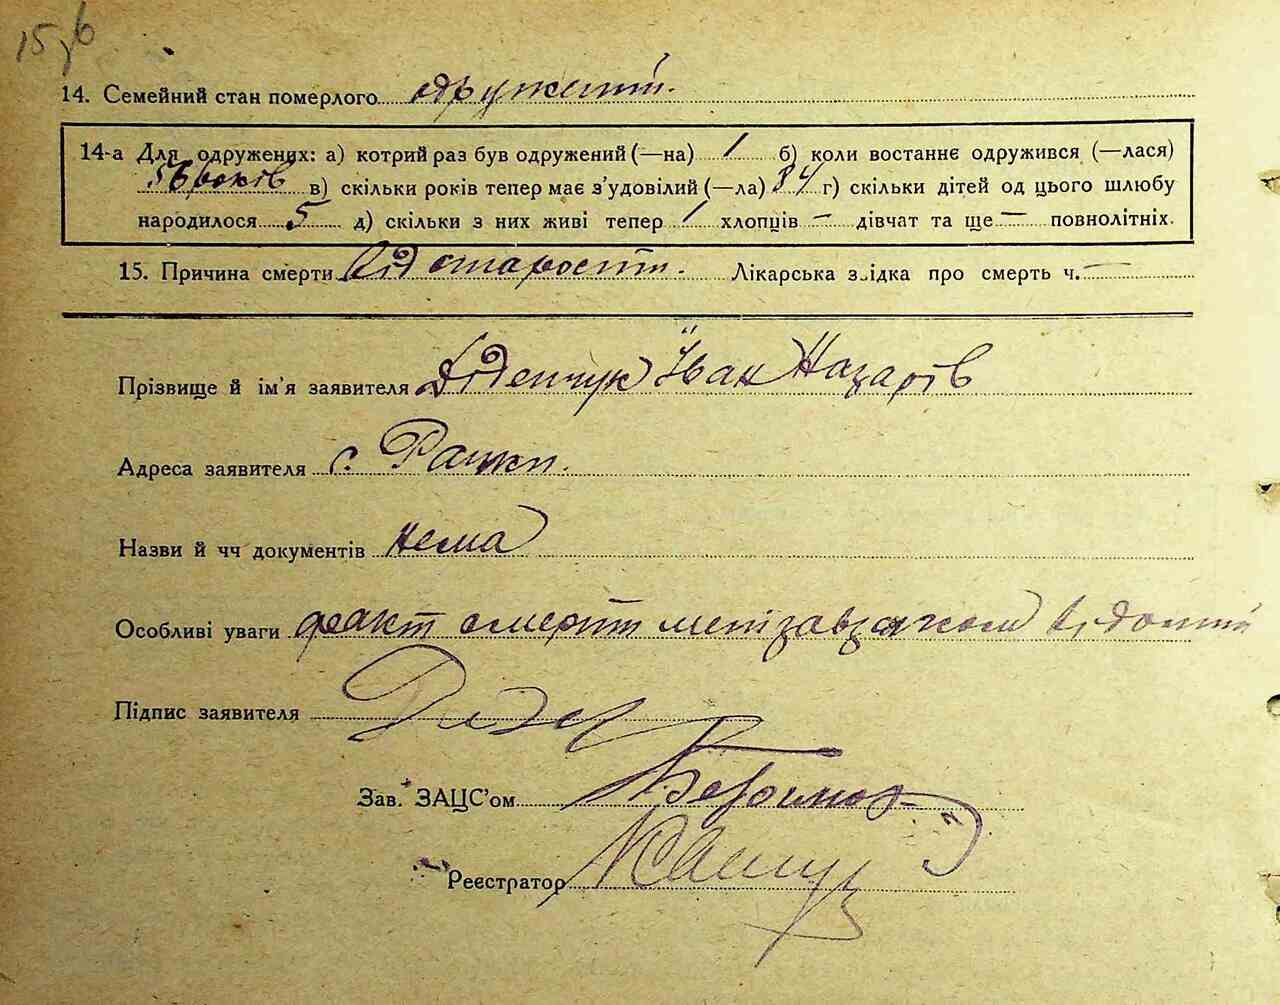 14. Семейний стан померлого одружений.
14-а Для одружених: а) котрий раз був одружений (—на) 1 б) коли востаннє одружився (—лася)
56 років в) скільки років тепер має з'удовілий (—ла) 84 г) скільки дітей од цього шлюбу
народилося 5 д) скільки з них живі тепер 1 хлопців — дівчат та ще — повнолітніх.
15. Причина смерти Від старости. Лікарська звідка про смерть ч. —
Прізвище й ім'я заявителя Діденчук Іван Назарів
Адреса заявителя с. Рачки.
Назви й чч документів нема
Особливі уваги факт смерти мені завзагсом відомий
Підпис заявителя
Зав. ЗАЦС'ом
Реєстратор